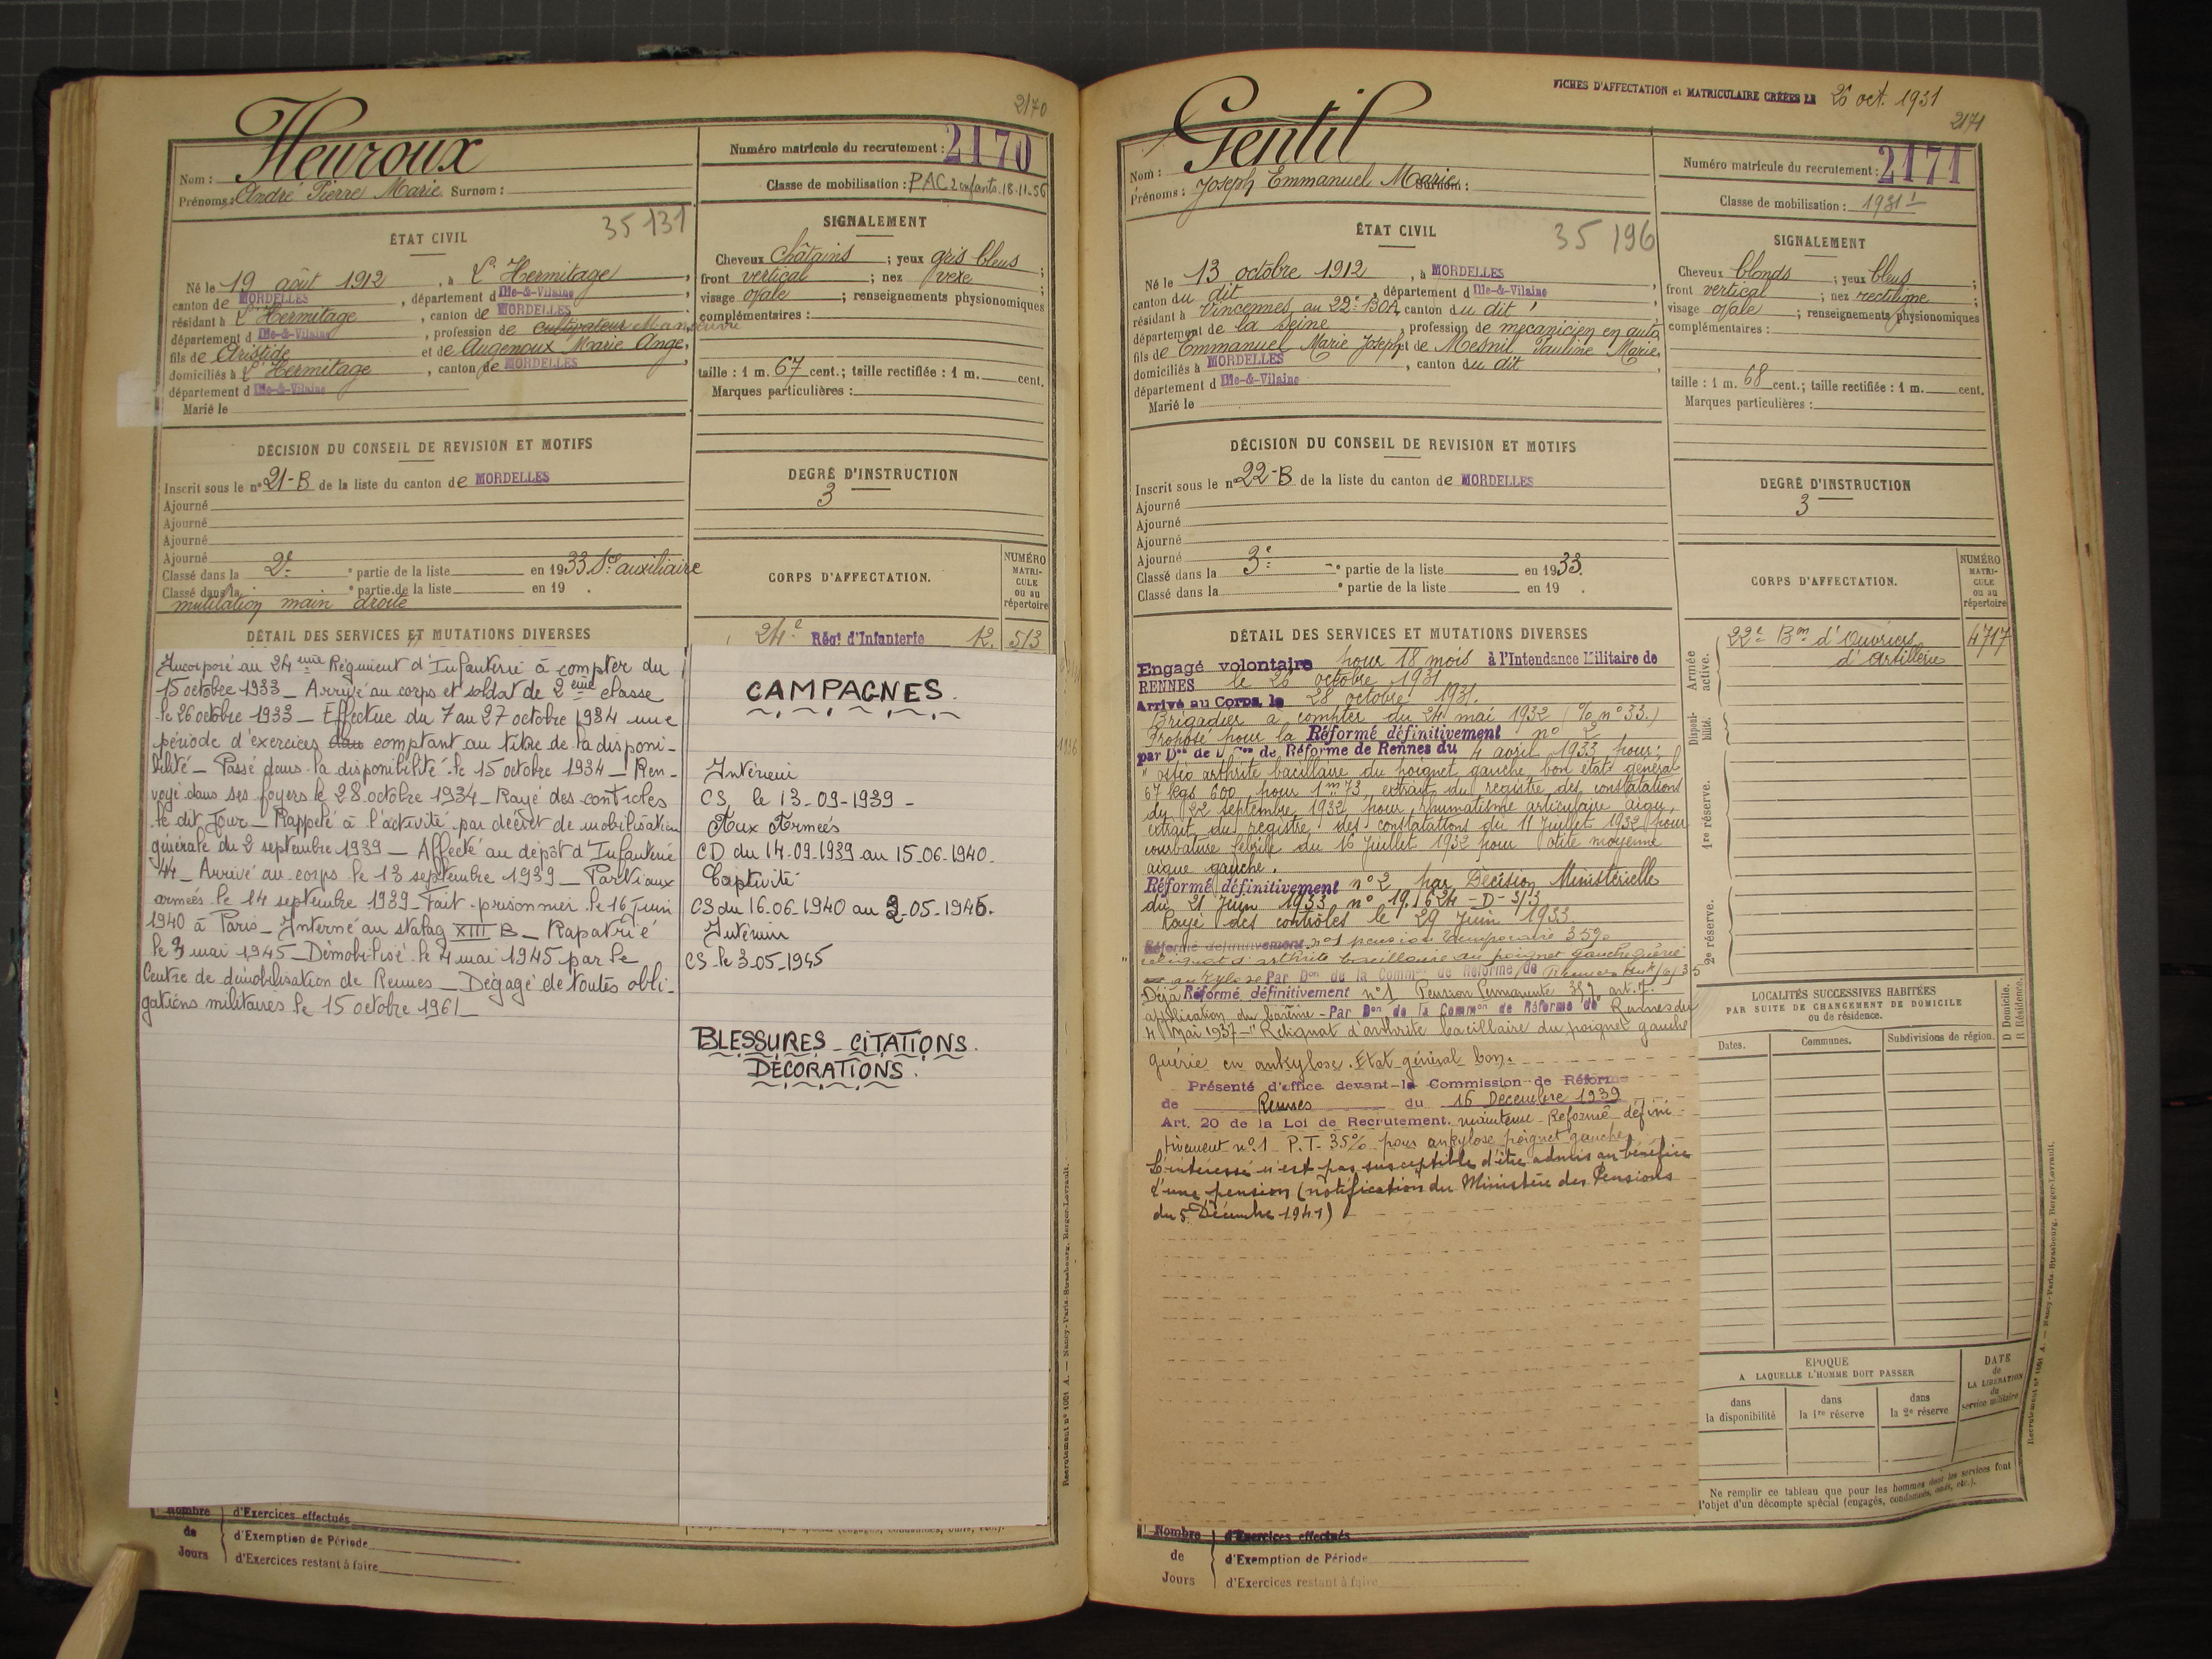 2170
Heuroux
Nom :
Prénoms : André Pierre Marie Surnom :
Numéro matricule du recrutement : 2170
Classe de mobilisation : PAC 2 enfants 18-11-56
35 131
ÉTAT CIVIL
Né le 19 août 1912, à L'Hermitage
canton de MORDELLES, département d'Ille-&-Vilaine
résidant à L'Hermitage, canton de MORDELLES
département d'Ille-&-Vilaine, profession de cultivateur Manœuvre
fils de Aristide et de Augenoux Marie Ange,
domiciliés à L'Hermitage, canton de MORDELLES
département d'Ille-&-Vilaine
Marié le
SIGNALEMENT
Cheveux châtains ; yeux gris bleus ;
front vertical ; nez vexe ;
visage ovale ; renseignements physionomiques
complémentaires :
taille : 1 m. 67 cent. ; taille rectifiée : 1 m. cent.
Marques particulières :
DÉCISION DU CONSEIL DE REVISION ET MOTIFS
Inscrit sous le n° 21-B de la liste du canton de MORDELLES
Ajourné
Ajourné
Ajourné
Ajourné
Classé dans la 2e partie de la liste en 1933 Sce auxiliaire
Classé dans la e partie de la liste en 19 .
mutilation main droite
DEGRÉ D'INSTRUCTION
3
CORPS D'AFFECTATION.
NUMÉRO MATRICULE ou au répertoire
24e Régt d'Infanterie 12. 513
DÉTAIL DES SERVICES ET MUTATIONS DIVERSES
Incorporé au 24ème Régiment d'Infanterie à compter du
15 octobre 1933 _ Arrivé au corps et soldat de 2ème classe
le 26 octobre 1933 _ Effectue du 7 au 27 octobre 1934 une
période d'exercices comptant au titre de la disponi-
bilité _ Passé dans la disponibilité le 15 octobre 1934 _ Ren-
voyé dans ses foyers le 28 octobre 1934 _ Rayé des contrôles
le dit Jour _ Rappelé à l'activité par décret de mobilisation
générale du 2 septembre 1939 _ Affecté au dépôt d'Infanterie
44 _ Arrivé au corps le 13 septembre 1939 _ Parti aux
armées le 14 septembre 1939 _ Fait prisonnier le 16 Juin
1940 à Paris _ Interné au stalag XIII B _ Rapatrié
le 3 mai 1945 _ Démobilisé le 4 mai 1945 par le
Centre de démobilisation de Rennes _ Dégagé de toutes obli-
gations militaires le 15 octobre 1961 _
CAMPAGNES.
Intérieur
CS le 13-09-1939 -
Aux Armées
CD du 14-09-1939 au 15-06-1940.
Captivité
CS du 16-06-1940 au 2-05-1945.
Intérieur
CS le 3-05-1945
BLESSURES _ CITATIONS.
DÉCORATIONS.
Nombre de Jours
d'Exercices effectués
d'Exemption de Période
d'Exercices restant à faire
Recrutement n° 1001 A. — Nancy-Paris-Strasbourg, Berger-Levrault.
FICHES D'AFFECTATION et MATRICULAIRE CRÉÉES LE 26 oct. 1931
2171
Gentil
Nom :
Prénoms : Joseph Emmanuel Marie Surnom :
Numéro matricule du recrutement : 2171
Classe de mobilisation : 1931
35 196
ÉTAT CIVIL
Né le 13 octobre 1912, à MORDELLES
canton du dit, département d'Ille-&-Vilaine
résidant à Vincennes au 22e BOA, canton du dit
département de la Seine, profession de mécanicien en auto,
fils de Emmanuel Marie Joseph et de Mesnil Pauline Marie,
domiciliés à MORDELLES, canton du dit
département d'Ille-&-Vilaine
Marié le
SIGNALEMENT
Cheveux blonds ; yeux bleus ;
front vertical ; nez rectiligne ;
visage ovale ; renseignements physionomiques
complémentaires :
taille : 1 m. 68 cent. ; taille rectifiée : 1 m. cent.
Marques particulières :
DÉCISION DU CONSEIL DE REVISION ET MOTIFS
Inscrit sous le n° 22-B de la liste du canton de MORDELLES
Ajourné
Ajourné
Ajourné
Ajourné
Classé dans la 3e partie de la liste en 1933.
Classé dans la e partie de la liste en 19 .
DEGRÉ D'INSTRUCTION
3
CORPS D'AFFECTATION.
NUMÉRO MATRICULE ou au répertoire
Armée active.
22e Bon d'Ouvriers d'Artillerie 4717
Disponibilité.
1re réserve.
2e réserve.
DÉTAIL DES SERVICES ET MUTATIONS DIVERSES
Engagé volontaire pour 18 mois à l'Intendance Militaire de
RENNES le 26 octobre 1931
Arrivé au Corps le 28 octobre 1931.
Brigadier à compter du 24 mai 1932 (% n° 33.)
Proposé pour la Réformé définitivement n° 2
par Don de Con de Réforme de Rennes du 4 avril 1933 pour :
" ostéo arthrite bacillaire du poignet gauche bon état général
67 kgs 600 pour 1m73, extrait du registre des constatations
du 22 septembre 1932 pour rhumatisme articulaire aigu,
extrait du registre des constatations du 11 Juillet 1932 pour
courbature fébrile du 16 Juillet 1932 pour otite moyenne
aigue gauche.
Réformé définitivement n° 2 par Décision Ministérielle
du 21 Juin 1933 n° 19.624-D-3/3
Rayé des contrôles le 29 Juin 1933.
Réformé définitivement n° 1 pension temporaire 35%
" Reliquat d'arthrite bacillaire du poignet gauche guérie
en ankylose Par Don de la Common de Réforme de Rennes
Déjà Réformé définitivement n° 1 Pension Permanente 35%
application du barème - Par Don de la Common de Réforme de Rennes du
4 Mai 1937 - " Reliquat d'arthrite bacillaire du poignet gauche
guérie en ankylose. Etat général bon.
Présenté d'office devant la Commission de Réforme
de Rennes du 16 Décembre 1939
Art. 20 de la Loi de Recrutement. maintenu Réformé défini-
tivement n° 1 P.T. 35% pour ankylose poignet gauche.
L'intéressé n'est pas susceptible d'être admis au bénéfice
d'une pension (notification du Ministère des Pensions
du 5 Décembre 1941)
LOCALITÉS SUCCESSIVES HABITÉES
PAR SUITE DE CHANGEMENT DE DOMICILE
ou de résidence.
D Domicile. R Résidence.
Dates. Communes. Subdivisions de région.
ÉPOQUE
A LAQUELLE L'HOMME DOIT PASSER
dans la disponibilité
dans la 1re réserve
dans la 2e réserve
DATE de LA LIBÉRATION du service militaire
Ne remplir ce tableau que pour les hommes dont les services font
l'objet d'un décompte spécial (engagés, condamnés, omis, etc.).
Nombre de Jours
d'Exercices effectués
d'Exemption de Période
d'Exercices restant à faire
Recrutement n° 1001 A. — Nancy-Paris-Strasbourg, Berger-Levrault.